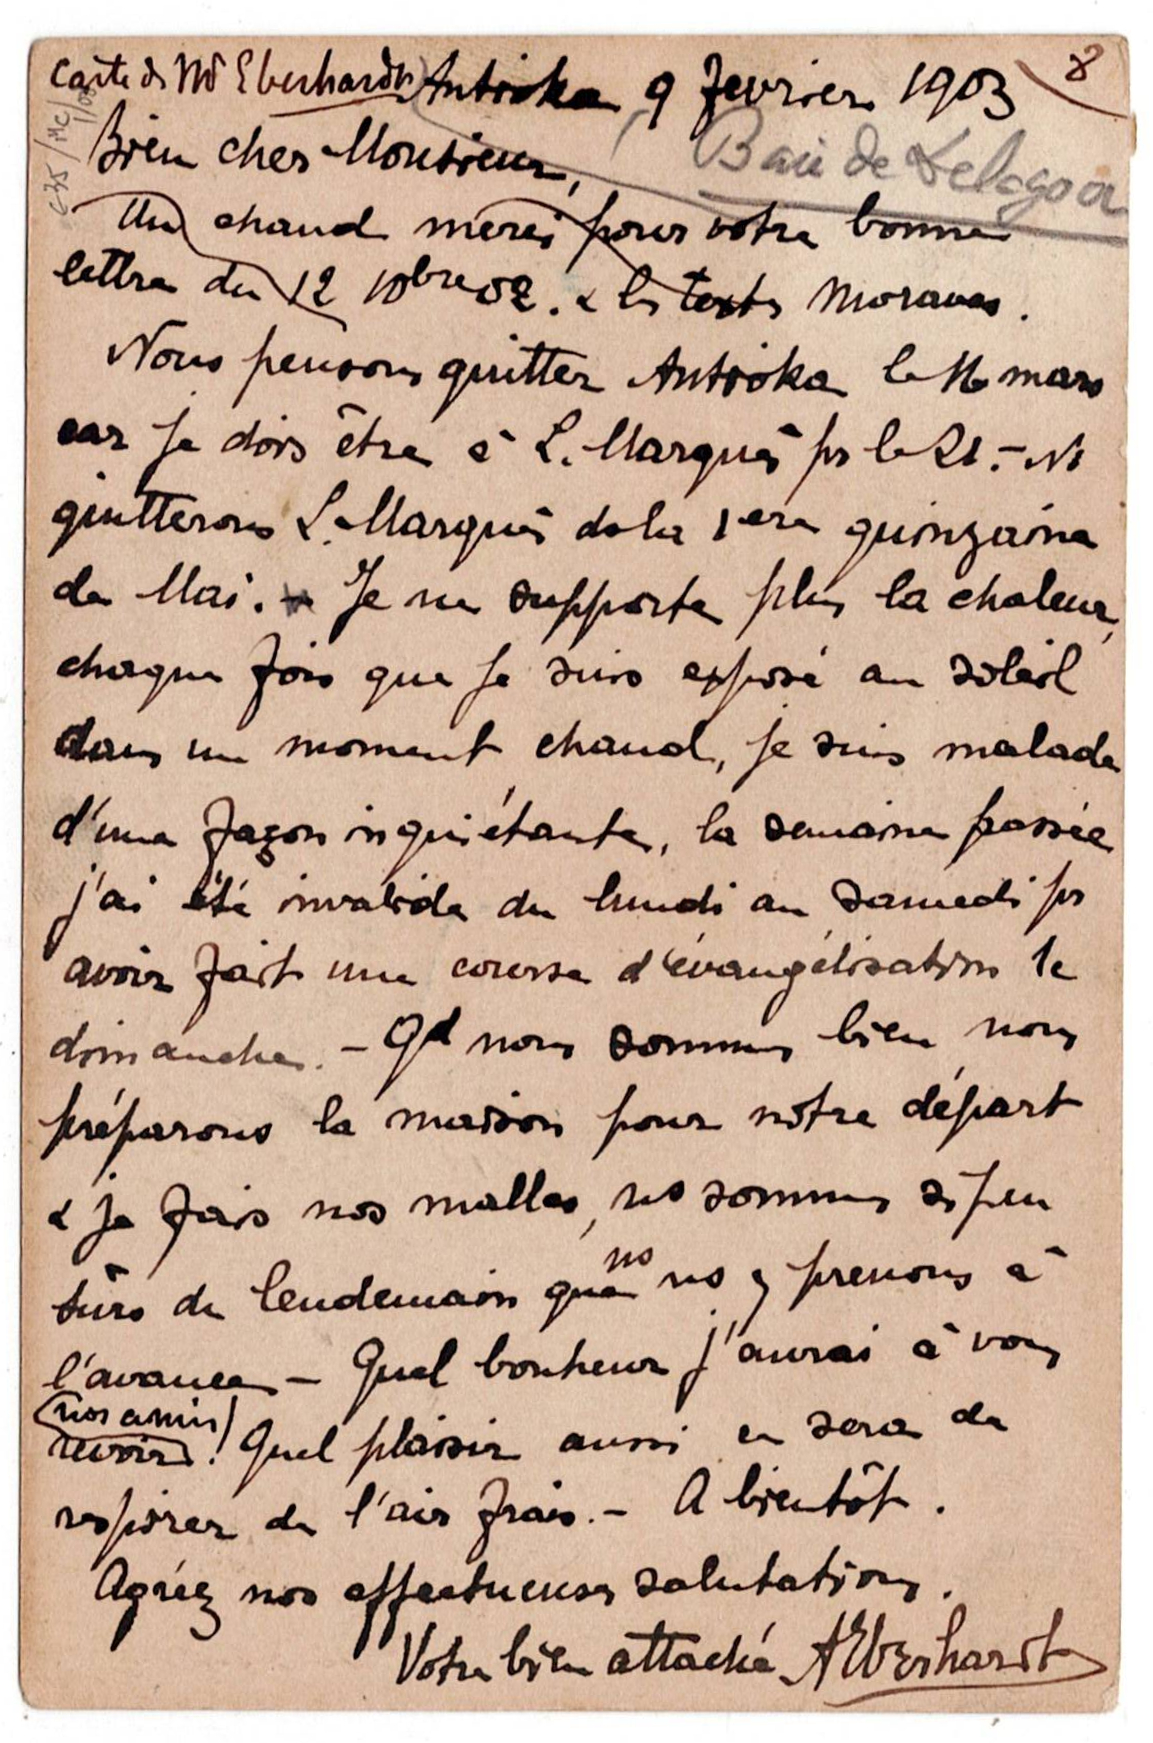 Carte de Mr Eberhardt Antioka, 9 Fevrier 1903 8
Baie de Delagoa
Bien cher Monsieur,
Un chaud merci pour votre bonne
lettre du 12 10bre 02. & les textes Moraves.
Nous pensons quitter Antioka le 16 mars
car je dois être à L. Marquès pr le 21. – Ns
quitterons L. Marquès ds la 1ere quinzaine
de Mai. – Je ne supporte plus la chaleur,
chaque fois que je suis exposé au soleil
dans un moment chaud, je suis malade
d'une façon inquiétante, la semaine passée
j'ai été invalide du lundi au samedi pr
avoir fait une course d'évangélisation le
dimanche. – Qd nous sommes bien nous
préparons la maison pour nôtre départ
& je fais nos malles, ns sommes si peu
sûrs du lendemain que ns ns y prenons à
l'avance – Quel bonheur j'aurai à vous
revoir (nos amis)! Quel plaisir aussi ce sera de
respirer de l'air frais. – A bientôt.
Agréez nos affectueuses salutations.
Votre bien attaché A Eberhardt